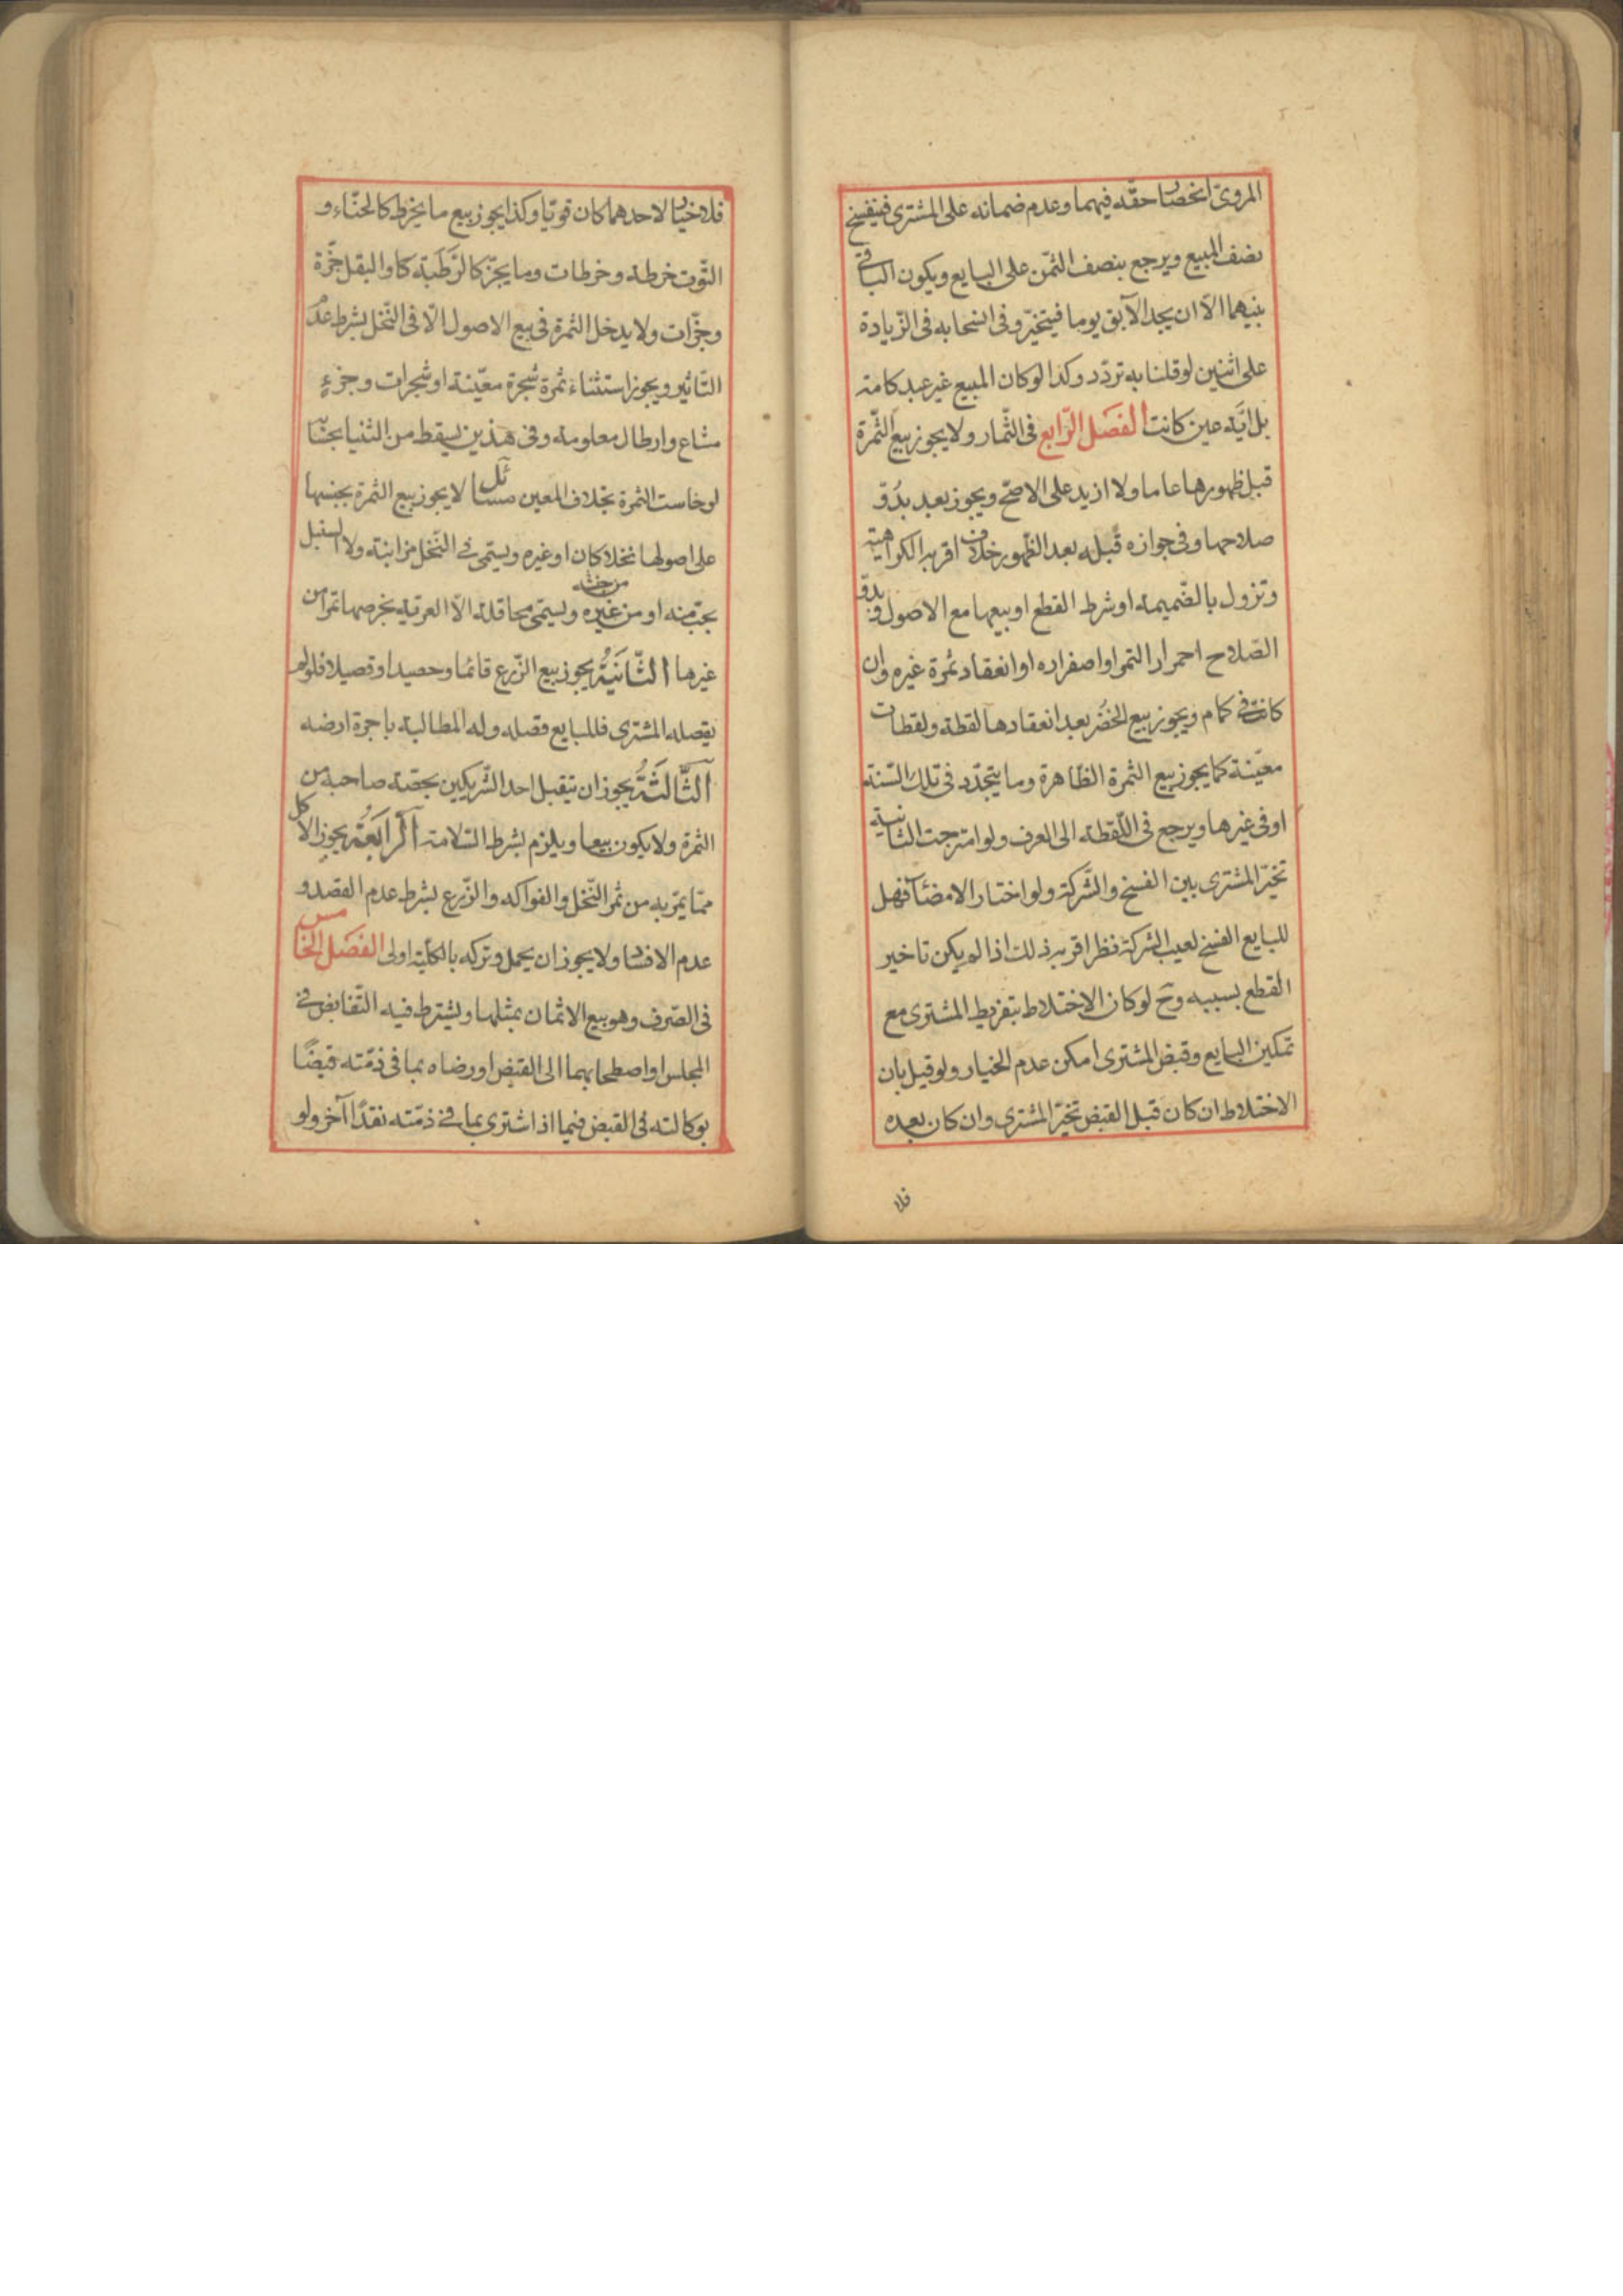 المروىّ انحصار حقّه فيهما وعدم ضمانه على المشترى فينفسخ
نصف المبيع ويرجع بنصف الثمّن على البايع ويكون الباقى
بينهما الّا ان يجد الآبق يوما فيتخيّر وفى انسحابه فى الزّيادة
على اثنين لو قلنا به تردّد وكذا لو كان المبيع غير عبد كامة
بل ايّة عين كانت الفصل الرّابع فى الثّمار ولا يجوز بيع الثّمرة
قبل ظهورها عاما ولا ازيد على الاصحّ ويجوز بعد بدُوّ
صلاحها وفى جوازه قبله بعد الظّهور خلاف اقربه الكراهية
وتزول بالضّميمة او شرط القطع او بيعها مع الاصول وبدوّ
الصّلاح احمرار التمر او اصفراره او انعقاد ثمرة غيره وان
كانت فى كمام ويجوز بيع الخضر بعد انعقادها لقطة ولقطات
معيّنة كما يجوز بيع الثمرة الظّاهرة وما يتجدّد فى تلك السّنة
او فى غيرها ويرجع فى اللّقطة الى العرف ولو امتزجت الثانية
تخيّر المشترى بين الفسخ والشّركة ولو اختار الامضاء فهل
للبايع الفسخ لعيب الشركة نظر اقربه ذلك اذا لم يكن تاخير
القطع بسببه وح لو كان الاختلاط بتفريط المشترى مع
تمكين البايع وقبض المشترى امكن عدم الخيار ولو قيل بان
الاختلاط ان كان قبل القبض تخيّر المشترى وان كان بعده
فلا
فلا خيار لاحدهما كان قويّا وكذا يجوز بيع ما يخرط كالحنّاء و
التّوت خرطة وخرطات وما يجزّ كالرّطَبة والبقل جزّة
وجزّات ولا يدخل الثمرة فى بيع الاصول الّا فى النّخل بشرط عدم
التّأبير ويجوز استثناء ثمرة شجرة معيّنة او شجرات وجزءٍ
مشاع وارطال معلومة وفى هذين يسقط من الثنيا بحسابه
لو خاست الثمرة بخلاف المعين مسائل لا يجوز بيع الثمرة بجنسها
على اصولها نخلا كان او غيره ويسمّى فى النّخل مزابنة ولا السنبل
بحبّ منه او من غيره من جنسه ويسمّى محاقلة الّا العرية بخرصها تمرا من
غيرها الثّانيَةُ يجوز بيع الزّرع قائما وحصيدا وقصيلا فلو لم
يقصله المشترى فللبايع قصله وله المطالبة باجرة ارضه
الثَّالثَةُ يجوز ان يتقبل احد الشّريكين بحصّة صاحبه من
الثمرة ولا يكون بيعا ويلزم بشرط السّلامة الرّابعَةُ يجوز الاكل
ممّا يمرّ به من ثمر النّخل والفواكه والزّرع بشرط عدم القصد و
عدم الافساد ولا يجوز ان يحمل وتركه بالكلّية اولى الفصل الخامس
فى الصّرف وهو بيع الاثمان بمثلها ويشترط فيه التّقابض فى
المجلس او اصطحابهما الى القبض او رضاه بما فى ذمّته قبضًا
بوكالته فى القبض فيما اذا اشترى بما فى ذمّته نقدًا آخر ولو